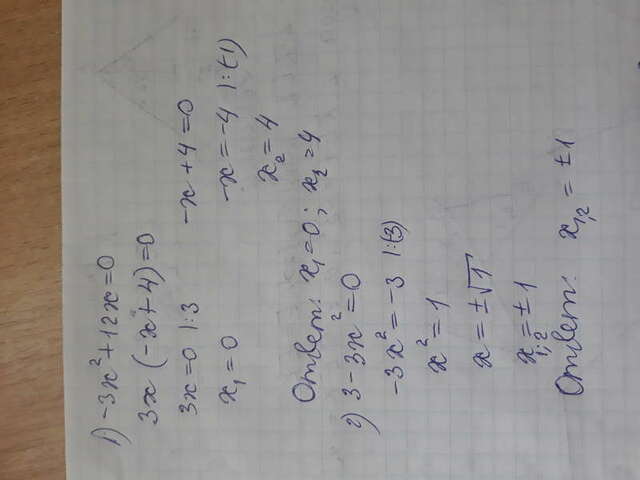 1) -3x²+12x=0
3x (-x+4)=0
3x=0 |:3 -x+4=0
x₁=0 -x=-4 |:(-1)
x₂=4
Ответ: x₁=0; x₂=4
2) 3-3x²=0
-3x²=-3 |:(-3)
x²=1
x=±√1
x₁;₂=±1
Ответ: x₁,₂=±1